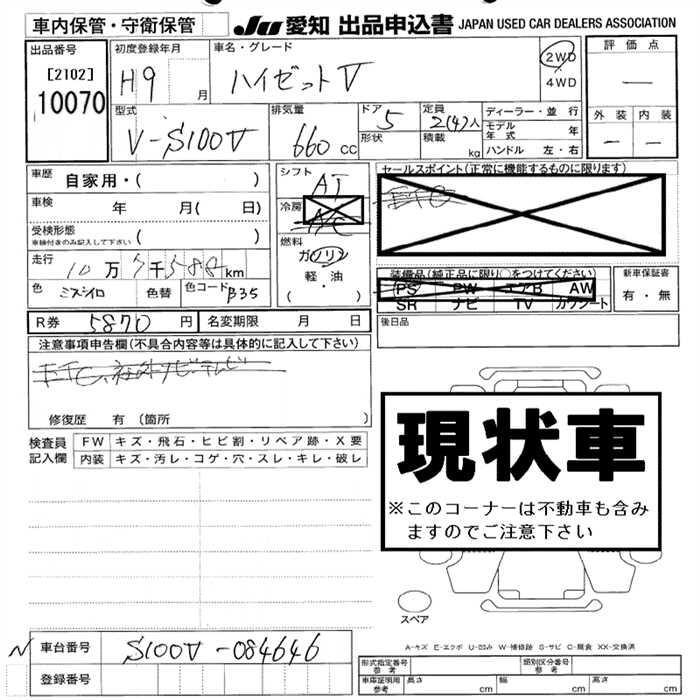 車内保管・守衛保管
JU 愛知 出品申込書 JAPAN USED CAR DEALERS ASSOCIATION
出品番号
[2102]
10070
初度登録年月
H9 月
車名・グレード
ハイゼットV
2WD
4WD
評価点
—
外装 内装
— —
型式
V-S100V
排気量
660 cc
ドア 5
形状
定員 2(4)人
積載 kg
ディーラー・並行
モデル年式 年
ハンドル 左・右
車歴 自家用・( )
車検 年 月( 日)
受検形態
車検付きのみ記入して下さい ( )
走行 10万7千588km
色 ミズイロ 色替 色コード B35
シフト AT
冷房 A/C
燃料
ガソリン
軽・油
( )
セールスポイント(正常に機能するものに限ります)
ETC
装備品(純正品に限り○をつけてください)
PS PW エアB AW
SR ナビ TV カワシート
新車保証書
有・無
R券 5870円 名変期限 月 日
後日品
注意事項申告欄(不具合内容等は具体的に記入して下さい)
ETC、社外ナビ・テレビ
修復歴 有 (箇所 )
検査員記入欄
FW キズ・飛石・ヒビ割・リペア跡・X要
内装 キズ・汚レ・コゲ・穴・スレ・キレ・破レ
現状車
※このコーナーは不動車も含み
ますのでご注意下さい
スペア
A-キズ E-エクボ U-凹み W-補修跡 S-サビ C-腐食 XX-交換済
N 車台番号 S100V-084646
登録番号
形式指定番号 参考
類別区分番号 参考
車庫証明用 参考 長さ cm 幅 cm 高さ cm